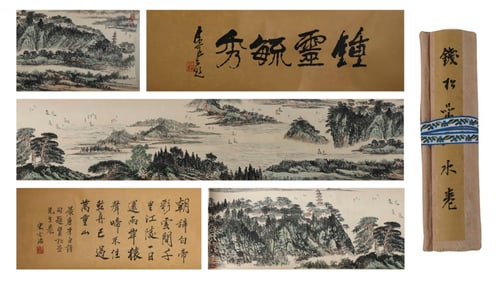 鍾靈毓秀
朝辞白帝
彩雲間千
里江陵一日
還兩岸猿
聲啼不住
輕舟已過
萬重山
先生卷
錢松嵒
水卷